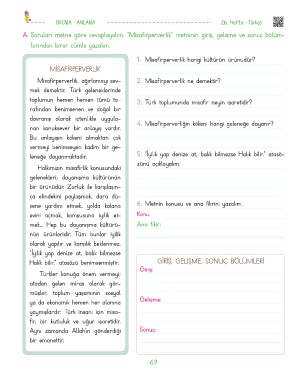 OKUMA - ANLAMA
26. Hafta - Türkçe
A. Soruları metne göre cevaplayalım. "Misafirperverlik" metninin giriş, gelişme ve sonuç bölüm-
lerinden birer cümle yazalım.
MİSAFİRPERVERLİK
Misafirperverlik, ağırlamayı sev-
mek demektir. Türk geleneklerinde
toplumun hemen hemen tümü ta-
rafından benimsenen ve doğal bir
davranış olarak içtenlikle uygula-
nan konuksever bir anlayış vardır.
Bu anlayışın kökeni olmaktan çok
vermeyi benimseyen kadim bir ge-
leneğe dayanmaktadır.
Halkımızın misafirlik konusundaki
gelenekleri, dayanışma kültürünün
bir ürünüdür. Zorluk ile karşılaşın-
ca elindekini paylaşmak, dara dü-
şene yardım etmek, yolda kalana
evini açmak, komşusuna iyilik et-
mek... Hep bu dayanışma kültürü-
nün ürünleridir. Tüm bunlar iyilik
olarak yapılır ve karşılık beklenmez.
"İyilik yap denize at, balık bilmezse
Halik bilir." atasözü benimsenmiştir.
Türkler konuğa önem vermeyi;
atadan gelen miras olarak gör-
müşler, toplum yaşamının sosyal
ya da ekonomik hemen her alanına
yaymışlardır. Türk insanı için misa-
fir, bir kutluluk ve uğur işaretidir.
Aynı zamanda Allah'ın gönderdiği
bir emanettir.
1. Misafirperverlik hangi kültürün ürünüdür?
2. Misafirperverlik ne demektir?
3. Türk toplumunda misafir neyin işaretidir?
4. Misafirperverliğin kökeni hangi geleneğe dayanır?
5. "İyilik yap denize at, balık bilmezse Halik bilir." atasö-
zünü açıklayalım.
6. Metnin konusu ve ana fikrini yazalım.
Konu:
Ana fikir:
GİRİŞ, GELİŞME, SONUÇ BÖLÜMLERİ
Giriş:
Gelişme:
Sonuç:
69